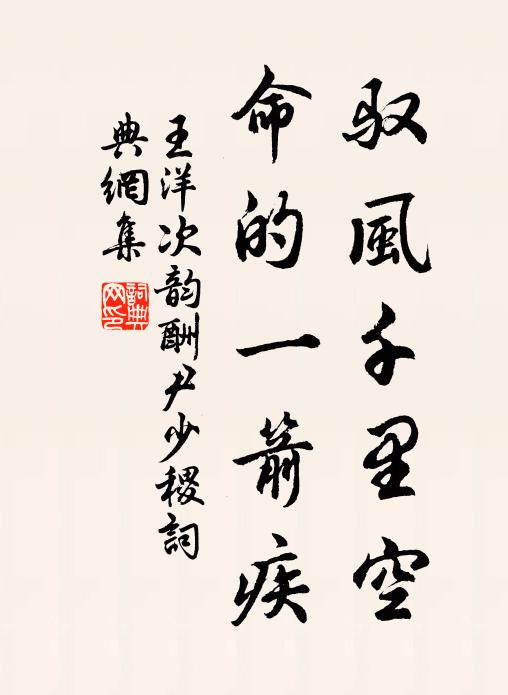 驭風千里空
命的一箭疾
王洋次韵酬尹少稷詞
典網集
詞典
网印